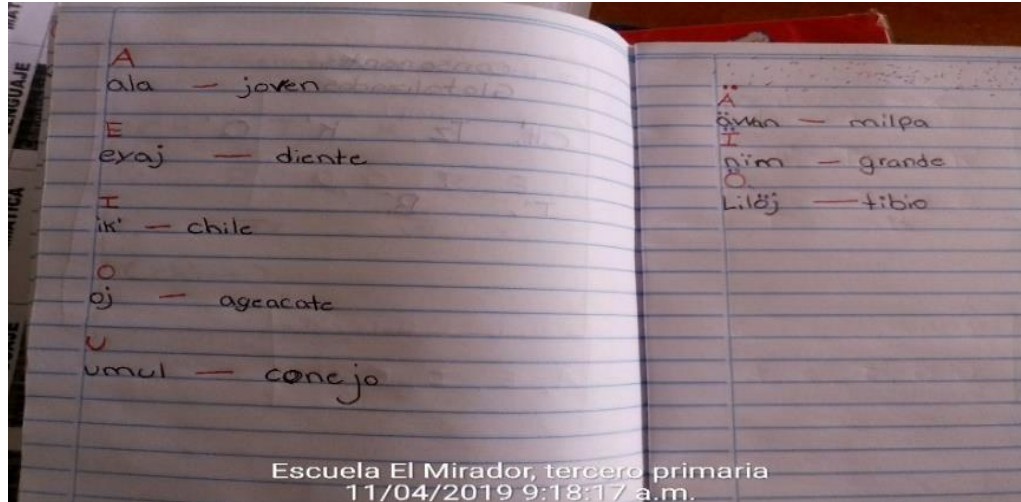 A
ala — joven
E
eyaj — diente
I
ik' — chile
O
oj — ageacate
U
umul — conejo
Ä
äwan — milpa
Ï
nïm — grande
Ö
Lilöj — tibio
LENGUAJE
Escuela El Mirador, tercero primaria
11/04/2019 9:18:17 a.m.